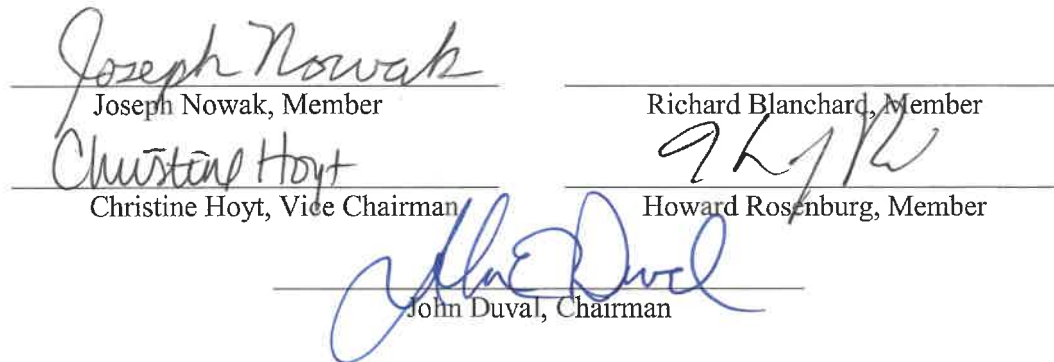 Joseph Nowak
Joseph Nowak, Member
Richard Blanchard, Member
Christine Hoyt
Christine Hoyt, Vice Chairman
Howard Rosenburg, Member
John E Duval
John Duval, Chairman